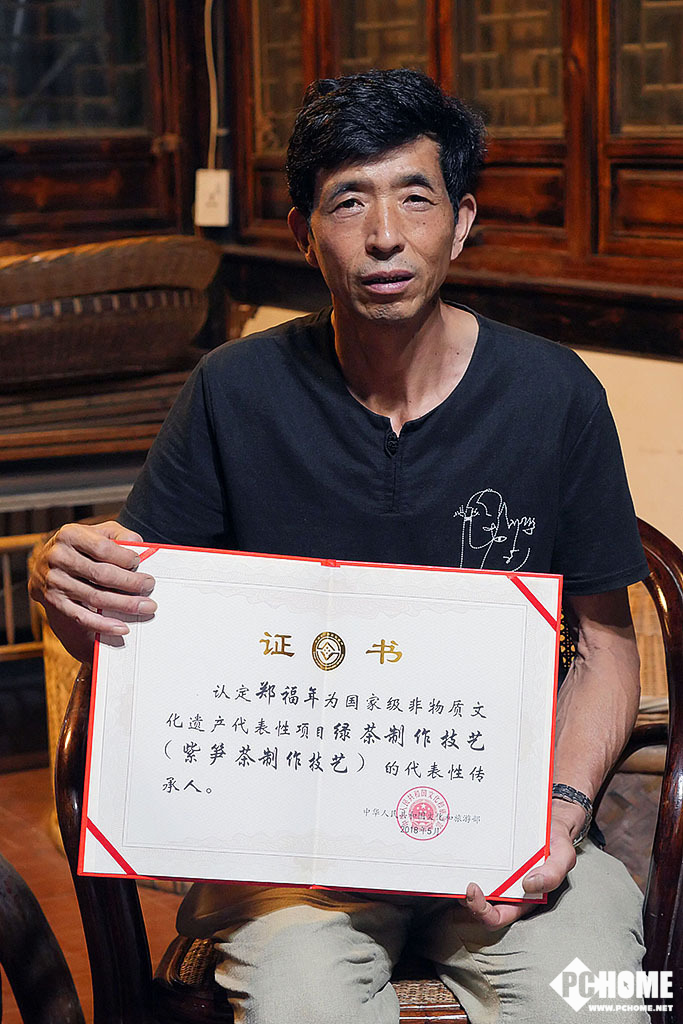 证 书
认定郑福年为国家级非物质文
化遗产代表性项目绿茶制作技艺
（紫笋茶制作技艺）的代表性传
承人。
中华人民共和国文化和旅游部
2018年5月
PCHOME
WWW.PCHOME.NET